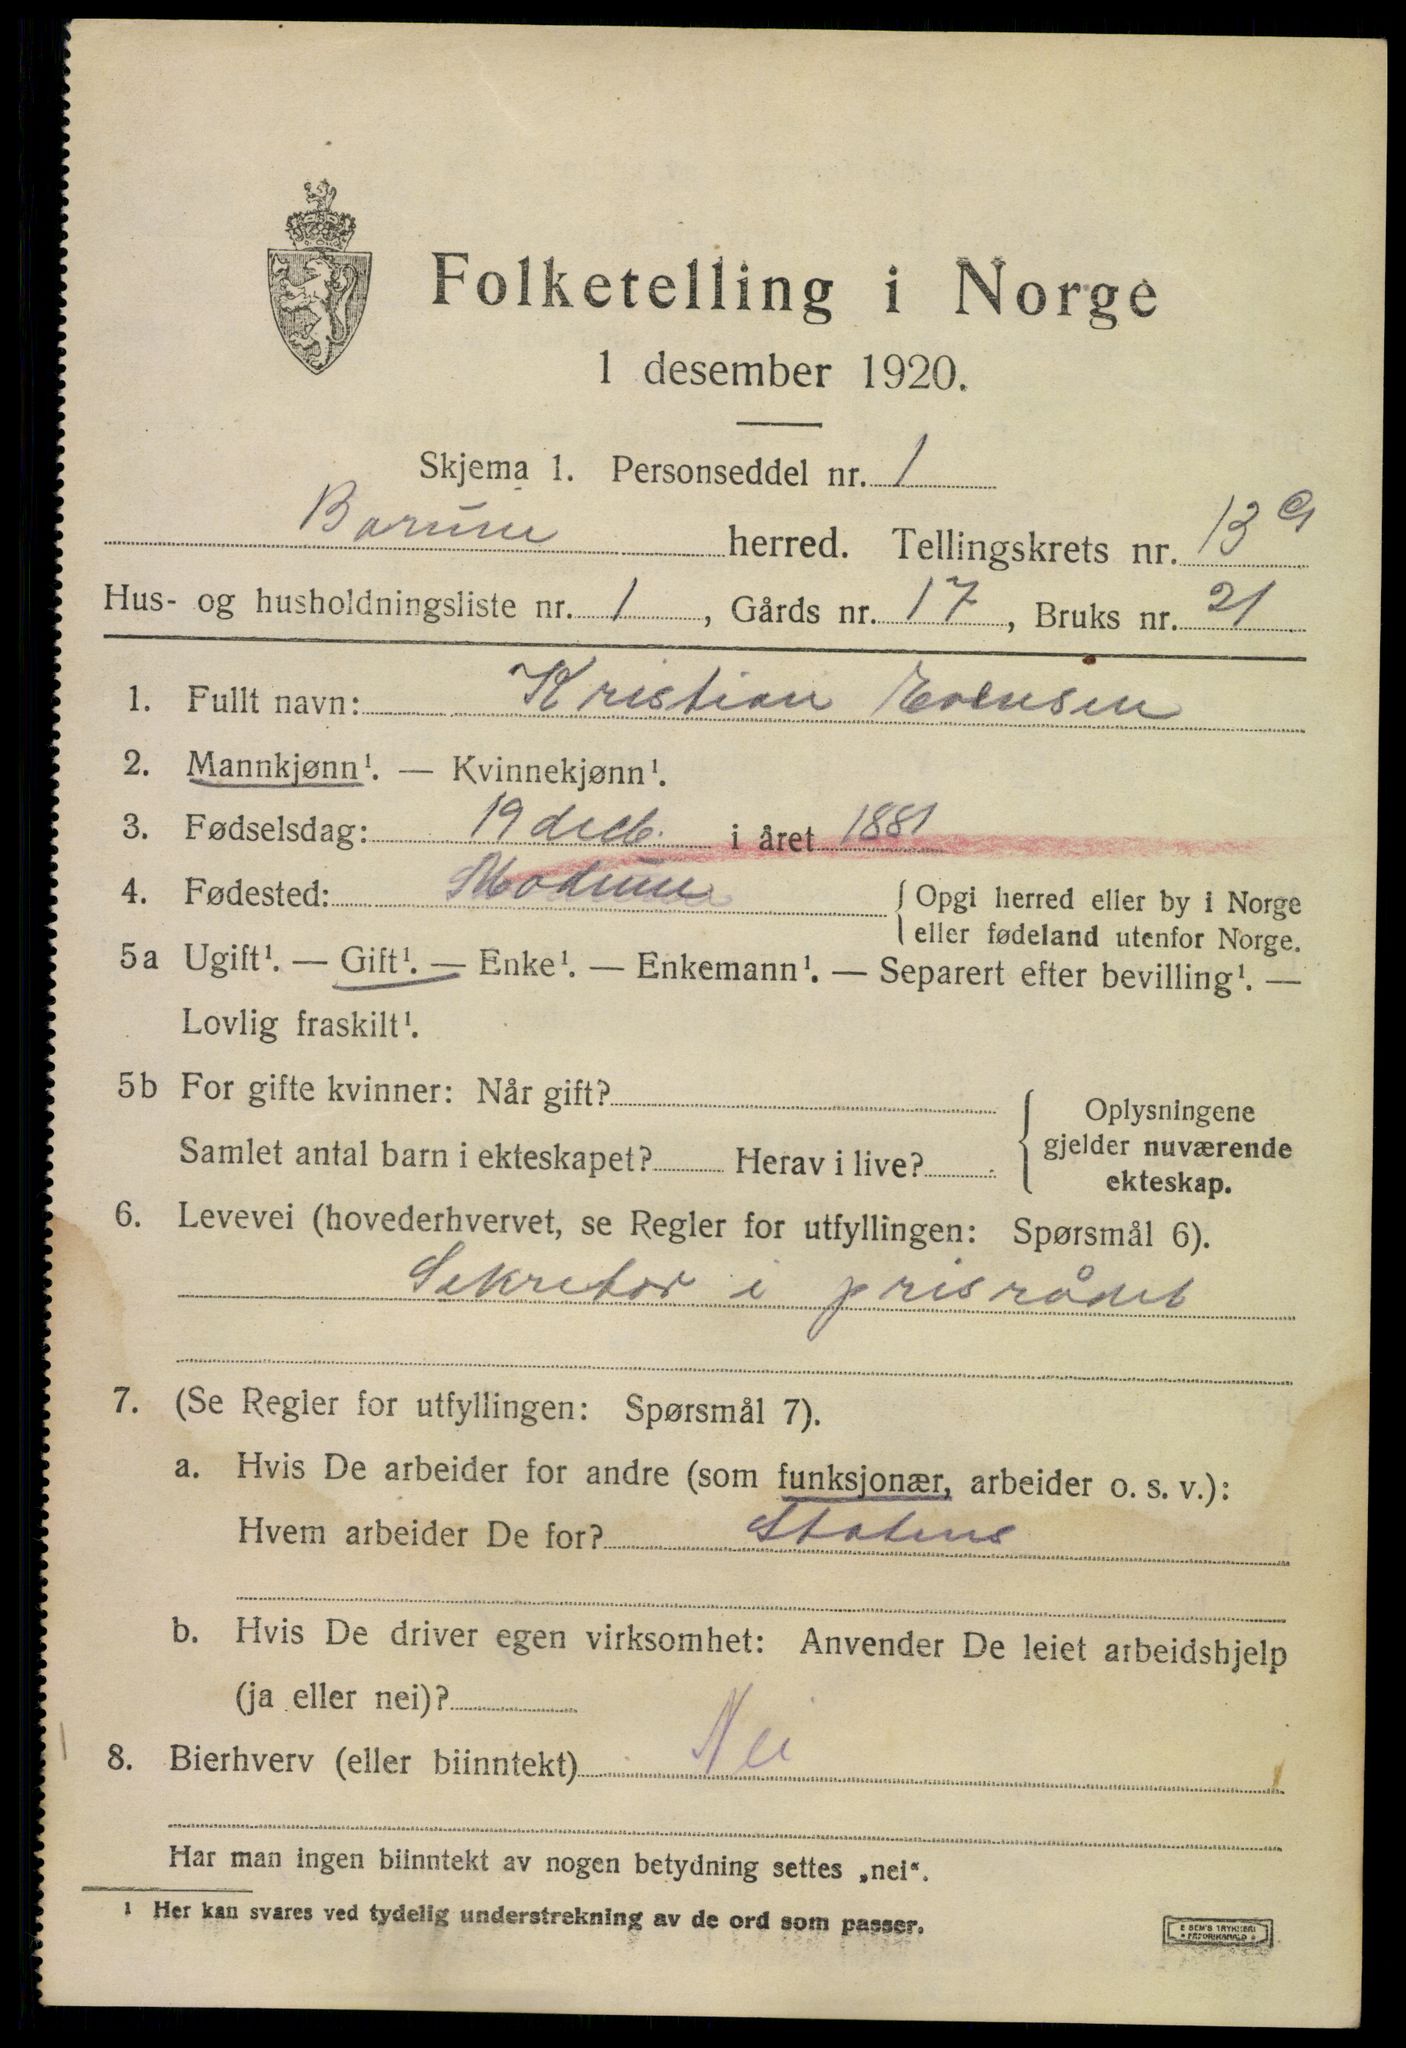 Folketelling i Norge
1 desember 1920.
Skjema 1. Personseddel nr. 1
Bærum herred. Tellingskrets nr. 13 a
Hus- og husholdningsliste nr. 1, Gårds nr. 17, Bruks nr. 21
1. Fullt navn: Kristian Evensen
2. Mannkjønn¹. — Kvinnekjønn¹.
3. Fødselsdag: 19 decb. i året 1881
4. Fødested: Modum { Opgi herred eller by i Norge
eller fødeland utenfor Norge.
5a Ugift¹. — Gift¹. — Enke¹. — Enkemann¹. — Separert efter bevilling¹. —
Lovlig fraskilt¹.
5b For gifte kvinner: Når gift?
Samlet antal barn i ekteskapet? Herav i live?
{ Oplysningene
gjelder nuværende
ekteskap.
6. Levevei (hovederhvervet, se Regler for utfyllingen: Spørsmål 6).
Sekretær i prisrådet
7. (Se Regler for utfyllingen: Spørsmål 7).
a. Hvis De arbeider for andre (som funksjonær, arbeider o. s. v.):
Hvem arbeider De for? Statens
b. Hvis De driver egen virksomhet: Anvender De leiet arbeidshjelp
(ja eller nei)?
8. Bierhverv (eller biinntekt) Nei
Har man ingen biinntekt av nogen betydning settes „nei“.
¹ Her kan svares ved tydelig understrekning av de ord som passer.
E SEM'S TRYKKERI
FREDRIKSHALD